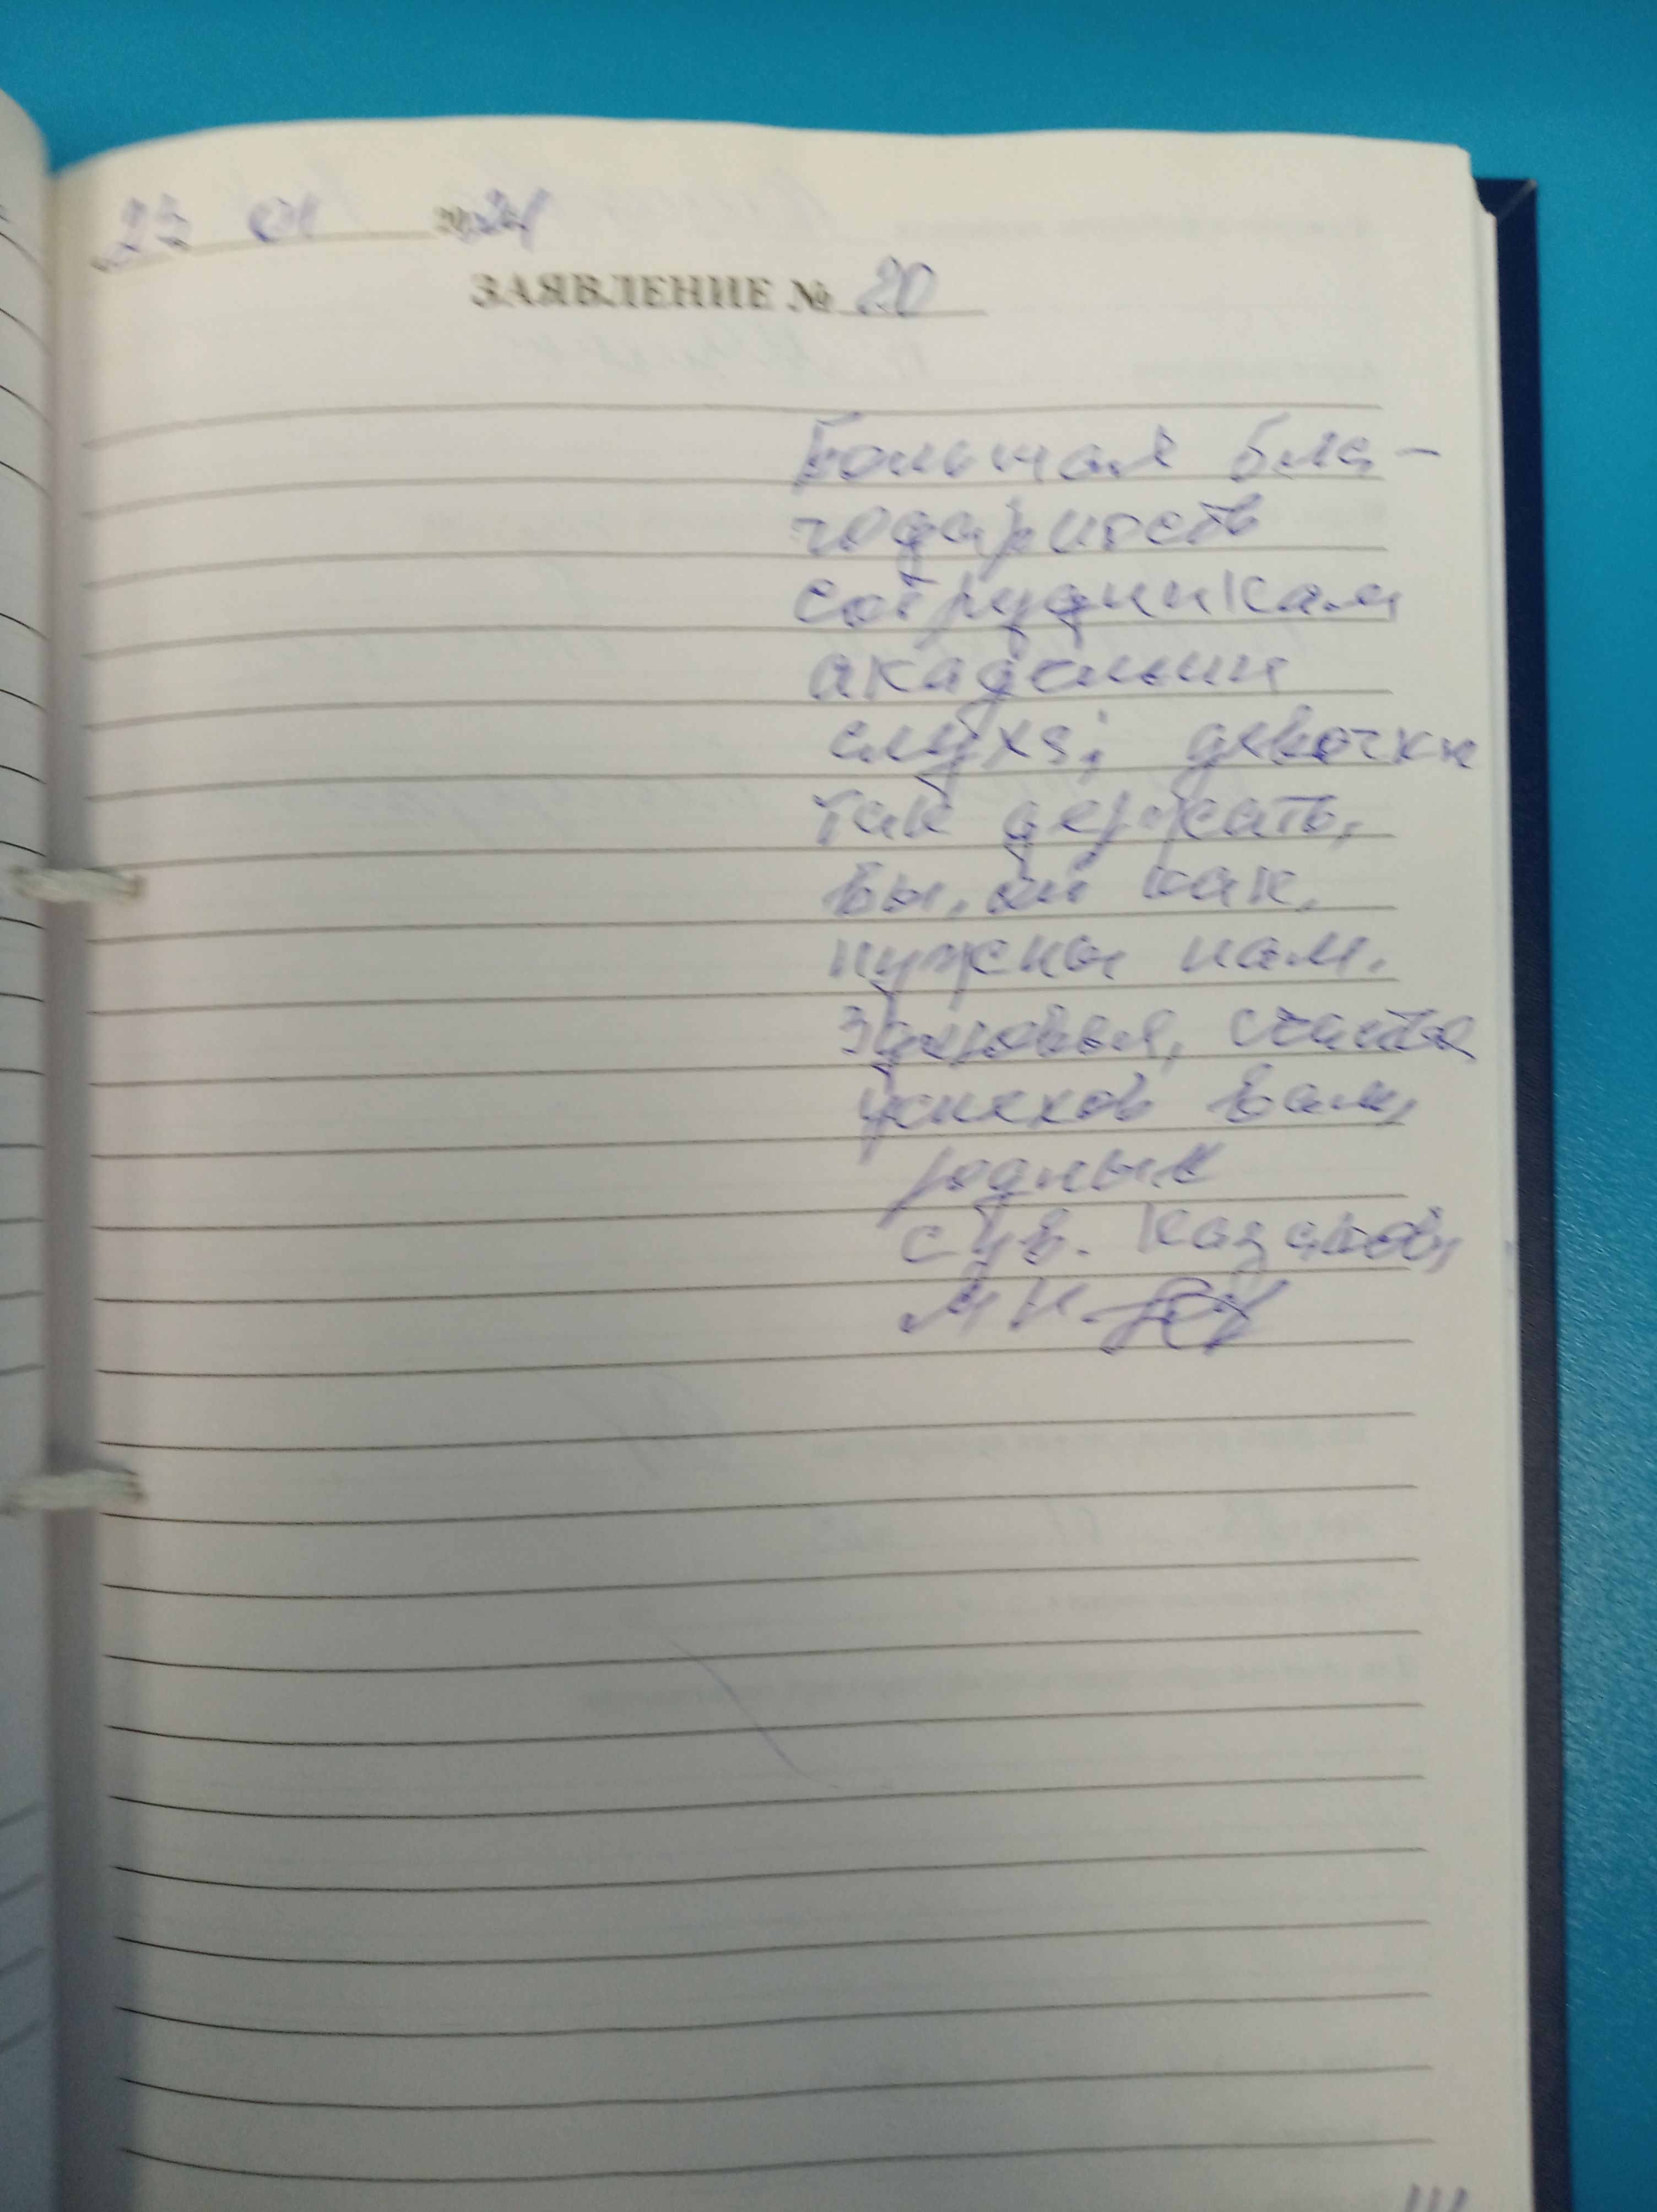 23 01 2024
ЗАЯВЛЕНИЕ № 20
Большая бла-
годарность
сотрудникам
академии
слуха; девочки
так держать,
вы, ой как,
нужны нам.
Здоровья, счастья
успехов Вам,
родных
с ув. Казаков,
М Н.